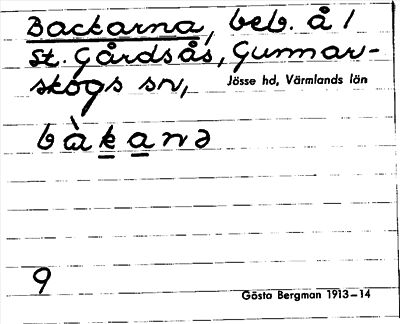 Backarna, beb. å 1
St. Gårdsås, Gunnar-
skogs sn, Jösse hd, Värmlands län
bàkanə
9
Gösta Bergman 1913–14